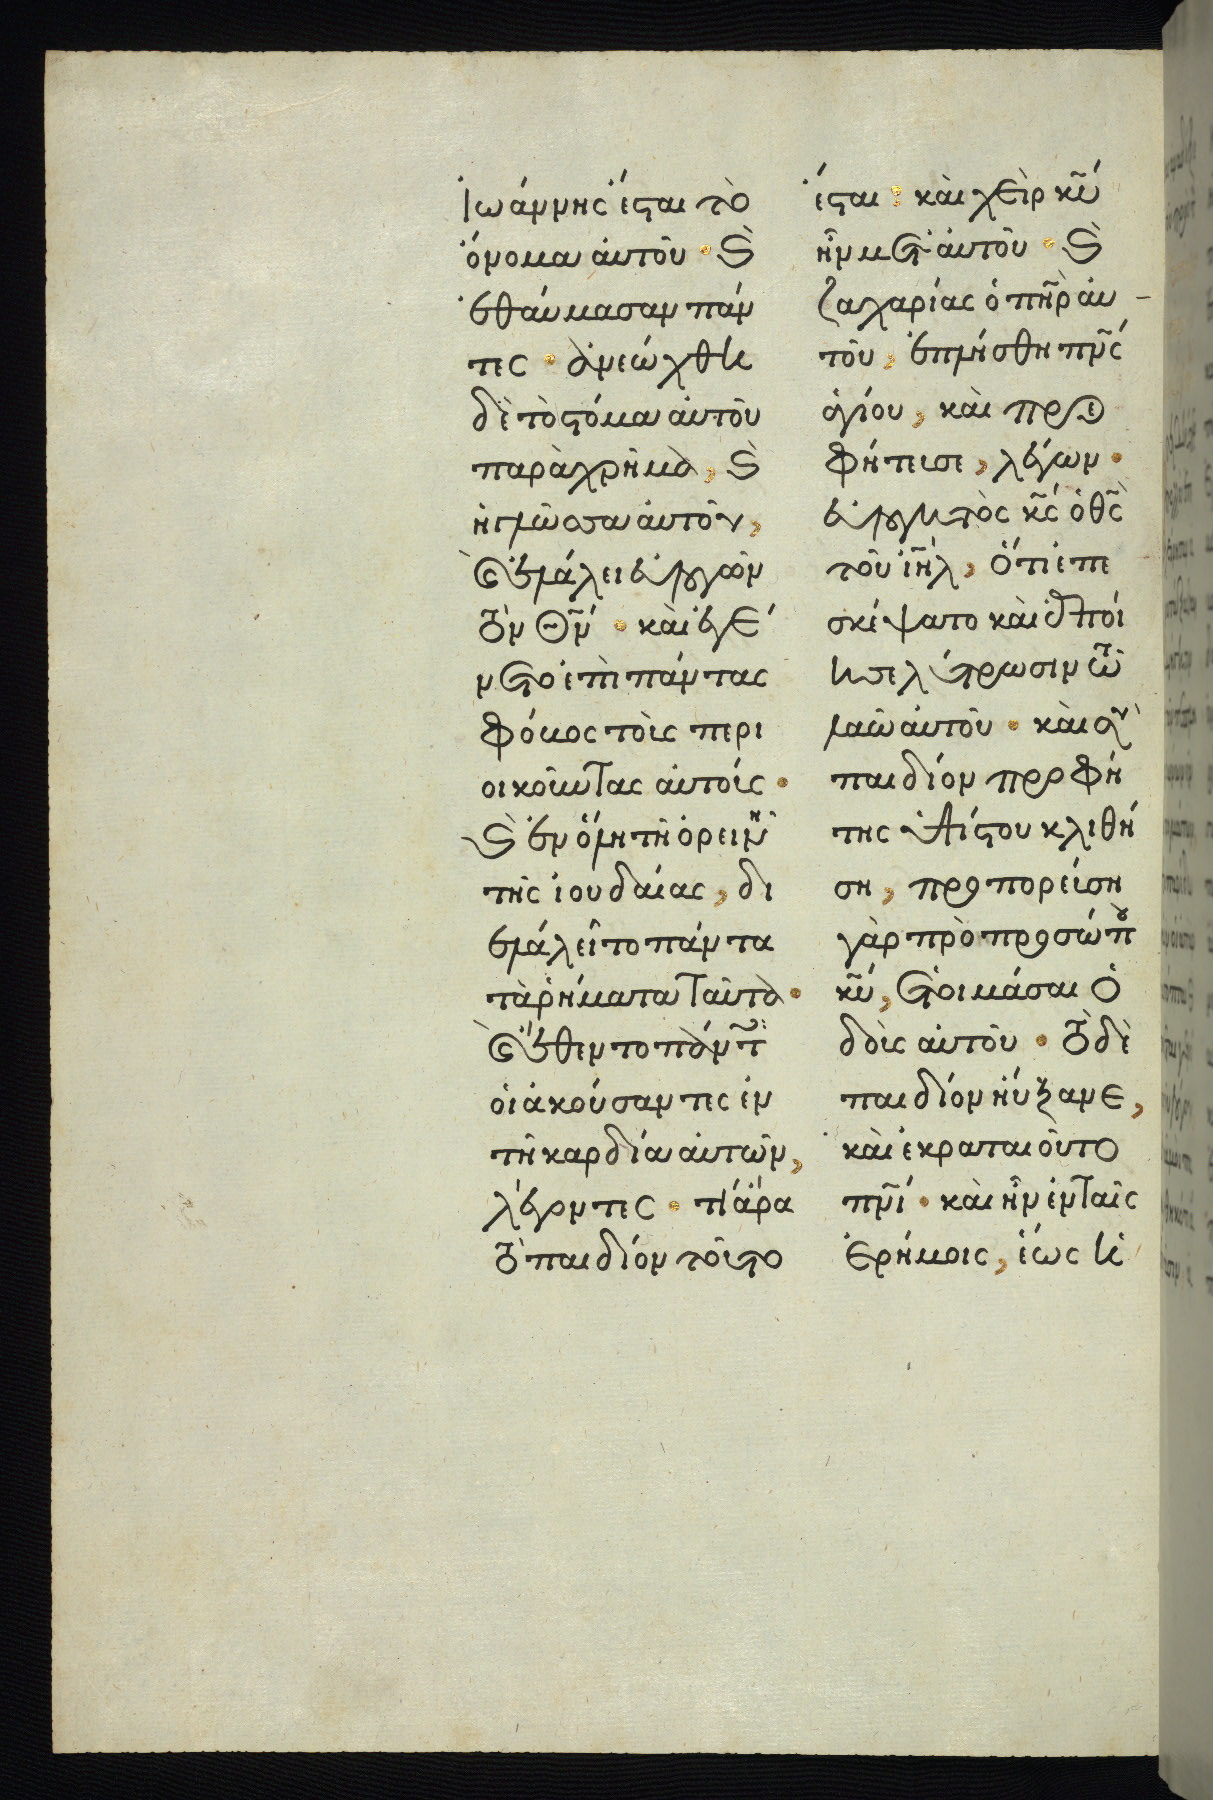 Ἰωάννης ἔσται τὸ
ὄνομα αὐτοῦ · καὶ
ἐθαύμασαν πάν
τες · ἀνεώχθη
δὲ τὸ στόμα αὐτοῦ
παρὰχρῆμα, καὶ
ἡ γλῶσσα αὐτοῦ,
καὶ ἐλάλει εὐλογῶν
τὸν θν̅ · καὶ ἐγέ
νετο ἐπὶ πάντας
φόβος τοὺς περι
οικοῦντας αὐτούς ·
καὶ ἐν ὅλη τῆ ὀρεινῆ
τῆς ἰουδαίας, δι
ελάλεῖτο πάντα
τὰ ῥήματα ταῦτα ·
καὶ ἔθεντο πάντες
οἱ ἀκούσαντες ἐν
τῆ καρδία αὐτῶν,
λέγοντες · τί ἄρα
τὸ παιδίον τοῦτο
ἔσται · καὶ χεὶρ κυ̅
ἦν μετ' αὐτοῦ · καὶ
ζαχαρίας ὁ πη̅ρ αὐ
τοῦ, ἐπλήσθη πν̅ς
ἁγίου, καὶ προε
φήτευσε, λέγων ·
εὐλογητὸς κς̅ ὁ θς̅
τοῦ ἰη̅λ, ὅτι ἐπε
σκέψατο καὶ ἐποί
ησε λύτρωσιν τῶ
λαῶ αὐτοῦ · καὶ σὺ
παιδίον προφή
της ὑψίστου κληθή
ση, προπορεύση
γὰρ πρὸ προσώπου
κυ̅, ἑτοιμάσαι ὁ
δοὺς αὐτοῦ · τὸ δὲ
παιδίον ηὔξανε,
καὶ ἐκραταιοῦτο
πνι̅ · καὶ ἦν ἐν ταῖς
ἐρήμοις, ἕως ἡ